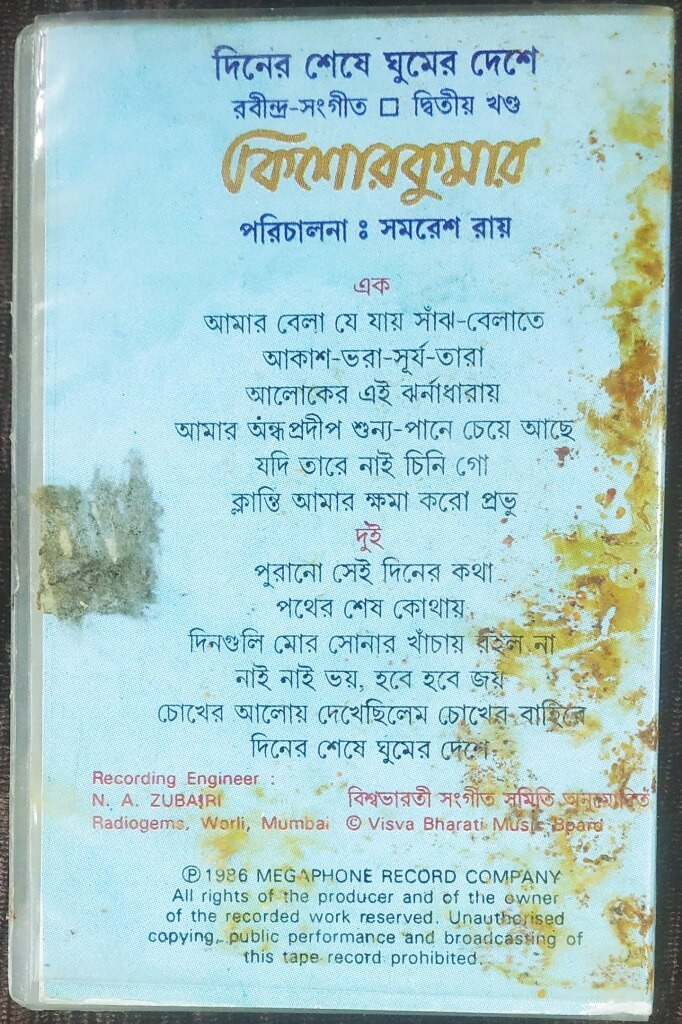 দিনের শেষে ঘুমের দেশে
রবীন্দ্র-সংগীত □ দ্বিতীয় খণ্ড
কিশোরকুমার
পরিচালনা : সমরেশ রায়
এক
আমার বেলা যে যায় সাঁঝ-বেলাতে
আকাশ-ভরা-সূর্য-তারা
আলোকের এই ঝর্নাধারায়
আমার অন্ধপ্রদীপ শুন্য-পানে চেয়ে আছে
যদি তারে নাই চিনি গো
ক্লান্তি আমার ক্ষমা করো প্রভু
দুই
পুরানো সেই দিনের কথা
পথের শেষ কোথায়
দিনগুলি মোর সোনার খাঁচায় রইল না
নাই নাই ভয়, হবে হবে জয়
চোখের আলোয় দেখেছিলেম চোখের বাহিরে
দিনের শেষে ঘুমের দেশে
Recording Engineer :
N. A. ZUBAIRI
বিশ্বভারতী সংগীত সমিতি অনুমোদিত
Radiogems, Worli, Mumbai © Visva Bharati Music Board
℗ 1986 MEGAPHONE RECORD COMPANY
All rights of the producer and of the owner
of the recorded work reserved. Unauthorised
copying, public performance and broadcasting of
this tape record prohibited.